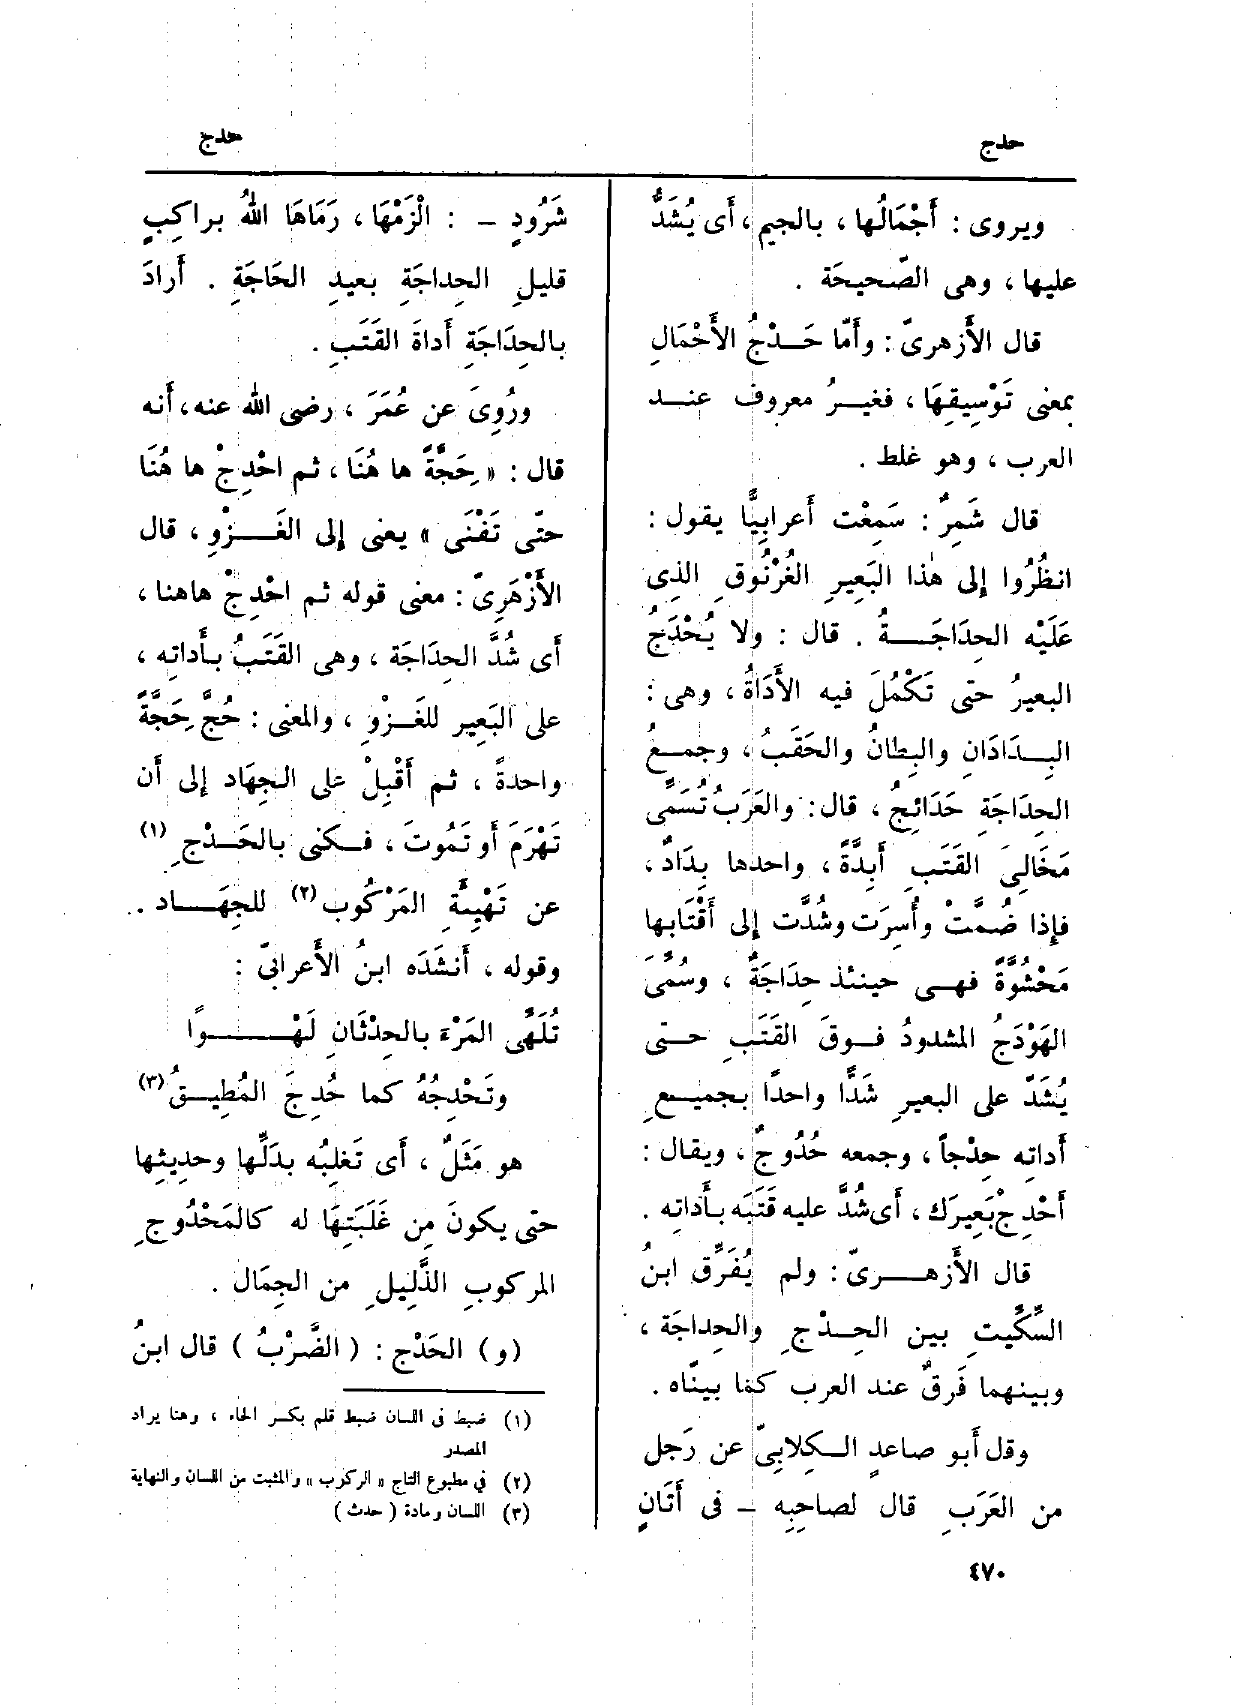 حدج
حدج
ويروى : أَجْمَالُها ، بالجيم ، أَى يُشَدُّ
عليها ، وهى الصّحيحَة .
قال الأَزهرىّ : وأَمّا حَــدْجُ الأَحْمَالِ
بمعنى تَوْسِيقِهَا ، فغيــرُ معروف عنــد
العرب ، وهو غلط .
قال شَمِرٌ : سَمِعْت أَعرابِيًّا يقول :
انظُرُوا إلى هٰذا البَعِيرِ الغُرْنُوقِ الذِى
عَلَيْه الحِدَاجَــةُ . قال : ولا يُحْدَجُ
البعيرُ حتى تَكْمُلَ فيه الأَدَاةُ ، وهى :
البِــدَادَانِ والبِطانُ والحَقَبُ ، وجمــعُ
الحِدَاجَةِ حَدَائِجُ ، قال : والعَرَبُ تُسَمِّى
مَخَالِىَ القَتَبِ أَبِدَّةً ، واحدها بِدَادٌ ،
فإِذا ضُمّتْ وأُسِرَت وشُدَّت إلى أَقْتَابِها
مَحْشُوَّةً فهــى حينئذ حِدَاجَةٌ ، وسُمِّىَ
الهَوْدَجُ المشدودُ فــوقَ القَتَبِ حــتى
يُشَدَّ على البعيرِ شَدًّا واحدًا بجميــعِ
أَداتِه حِدْجاً ، وجمعه حُدُوجٌ ، ويقال :
أَحْدِجْ بَعِيرَك ، أَى شُدَّ عليه قَتَبَه بأَداتِه .
قال الأَزهــرىّ : ولم يُفَرِّق ابنُ
السِّكِّيتِ بين الحِــدْجِ والحِداجَة ،
وبينهما فَرقٌ عند العرب كما بينّاه .
وقل أَبو صاعدٍ الــكِلابِىّ عن رَجل
من العَرَبِ قال لصاحِبِه ــ فى أَتَانٍ
شَرُودٍ ــ : الْزَمْهَا ، رَمَاهَا اللهُ براكِبٍ
قليلِ الحِداجَةِ بعيدِ الحَاجَةِ . أَرادَ
بالحِدَاجَةِ أَداةَ القَتَبِ .
ورُوِىَ عن عُمَرَ ، رضى الله عنه، أَنه
قال : « حَجَّةً ها هُنَا ، ثم احْدِجْ ها هُنَا
حتّى تَفْنَى » يعنى إلى الغَــزْوِ ، قال
الأَزْهَرِىّ : معنى قوله ثم احْدِجْ هاهنا ،
أَى شُدَّ الحِدَاجَة ، وهى القَتَبُ بأَداتِه ،
على البَعِير للغَــزْوِ ، والمعنى : حُجَّ حَجَّةً
واحدةً ، ثم أَقْبِلْ على الجِهَاد إلى أَن
تَهْرَمَ أَو تَمُوتَ ، فــكنى بالحَــدْجِ (١)
عن تَهْيِئَةِ المَرْكُوب (٢) للجِهَــاد .
وقوله ، أَنشَدَه ابنُ الأَعرابىّ :
تُلَهِّى المَرْءَ بالحِدْثَانِ لَهْــــوًا
وتَحْدِجُهُ كما حُدِجَ المُطِيــقُ (٣)
هو مَثَلٌ ، أَى تَغلِبُه بدَلِّها وحديثِها
حتى يكونَ مِن غَلَبَتِهَا له كالمَحْدُوجِ
المركوبِ الذَّلِيلِ من الجِمَال .
(و) الحَدْج : ( الضَّرْبُ ) قال ابنُ
(١) ضبط فى اللسان ضبط قلم بكسر الحاء ، وهنا يراد
المصدر
(٢) فى مطبوع التاج « الركوب » والمثبت من اللسان والنهاية
(٣) اللسان ومادة ( حدث )
٤٧٠